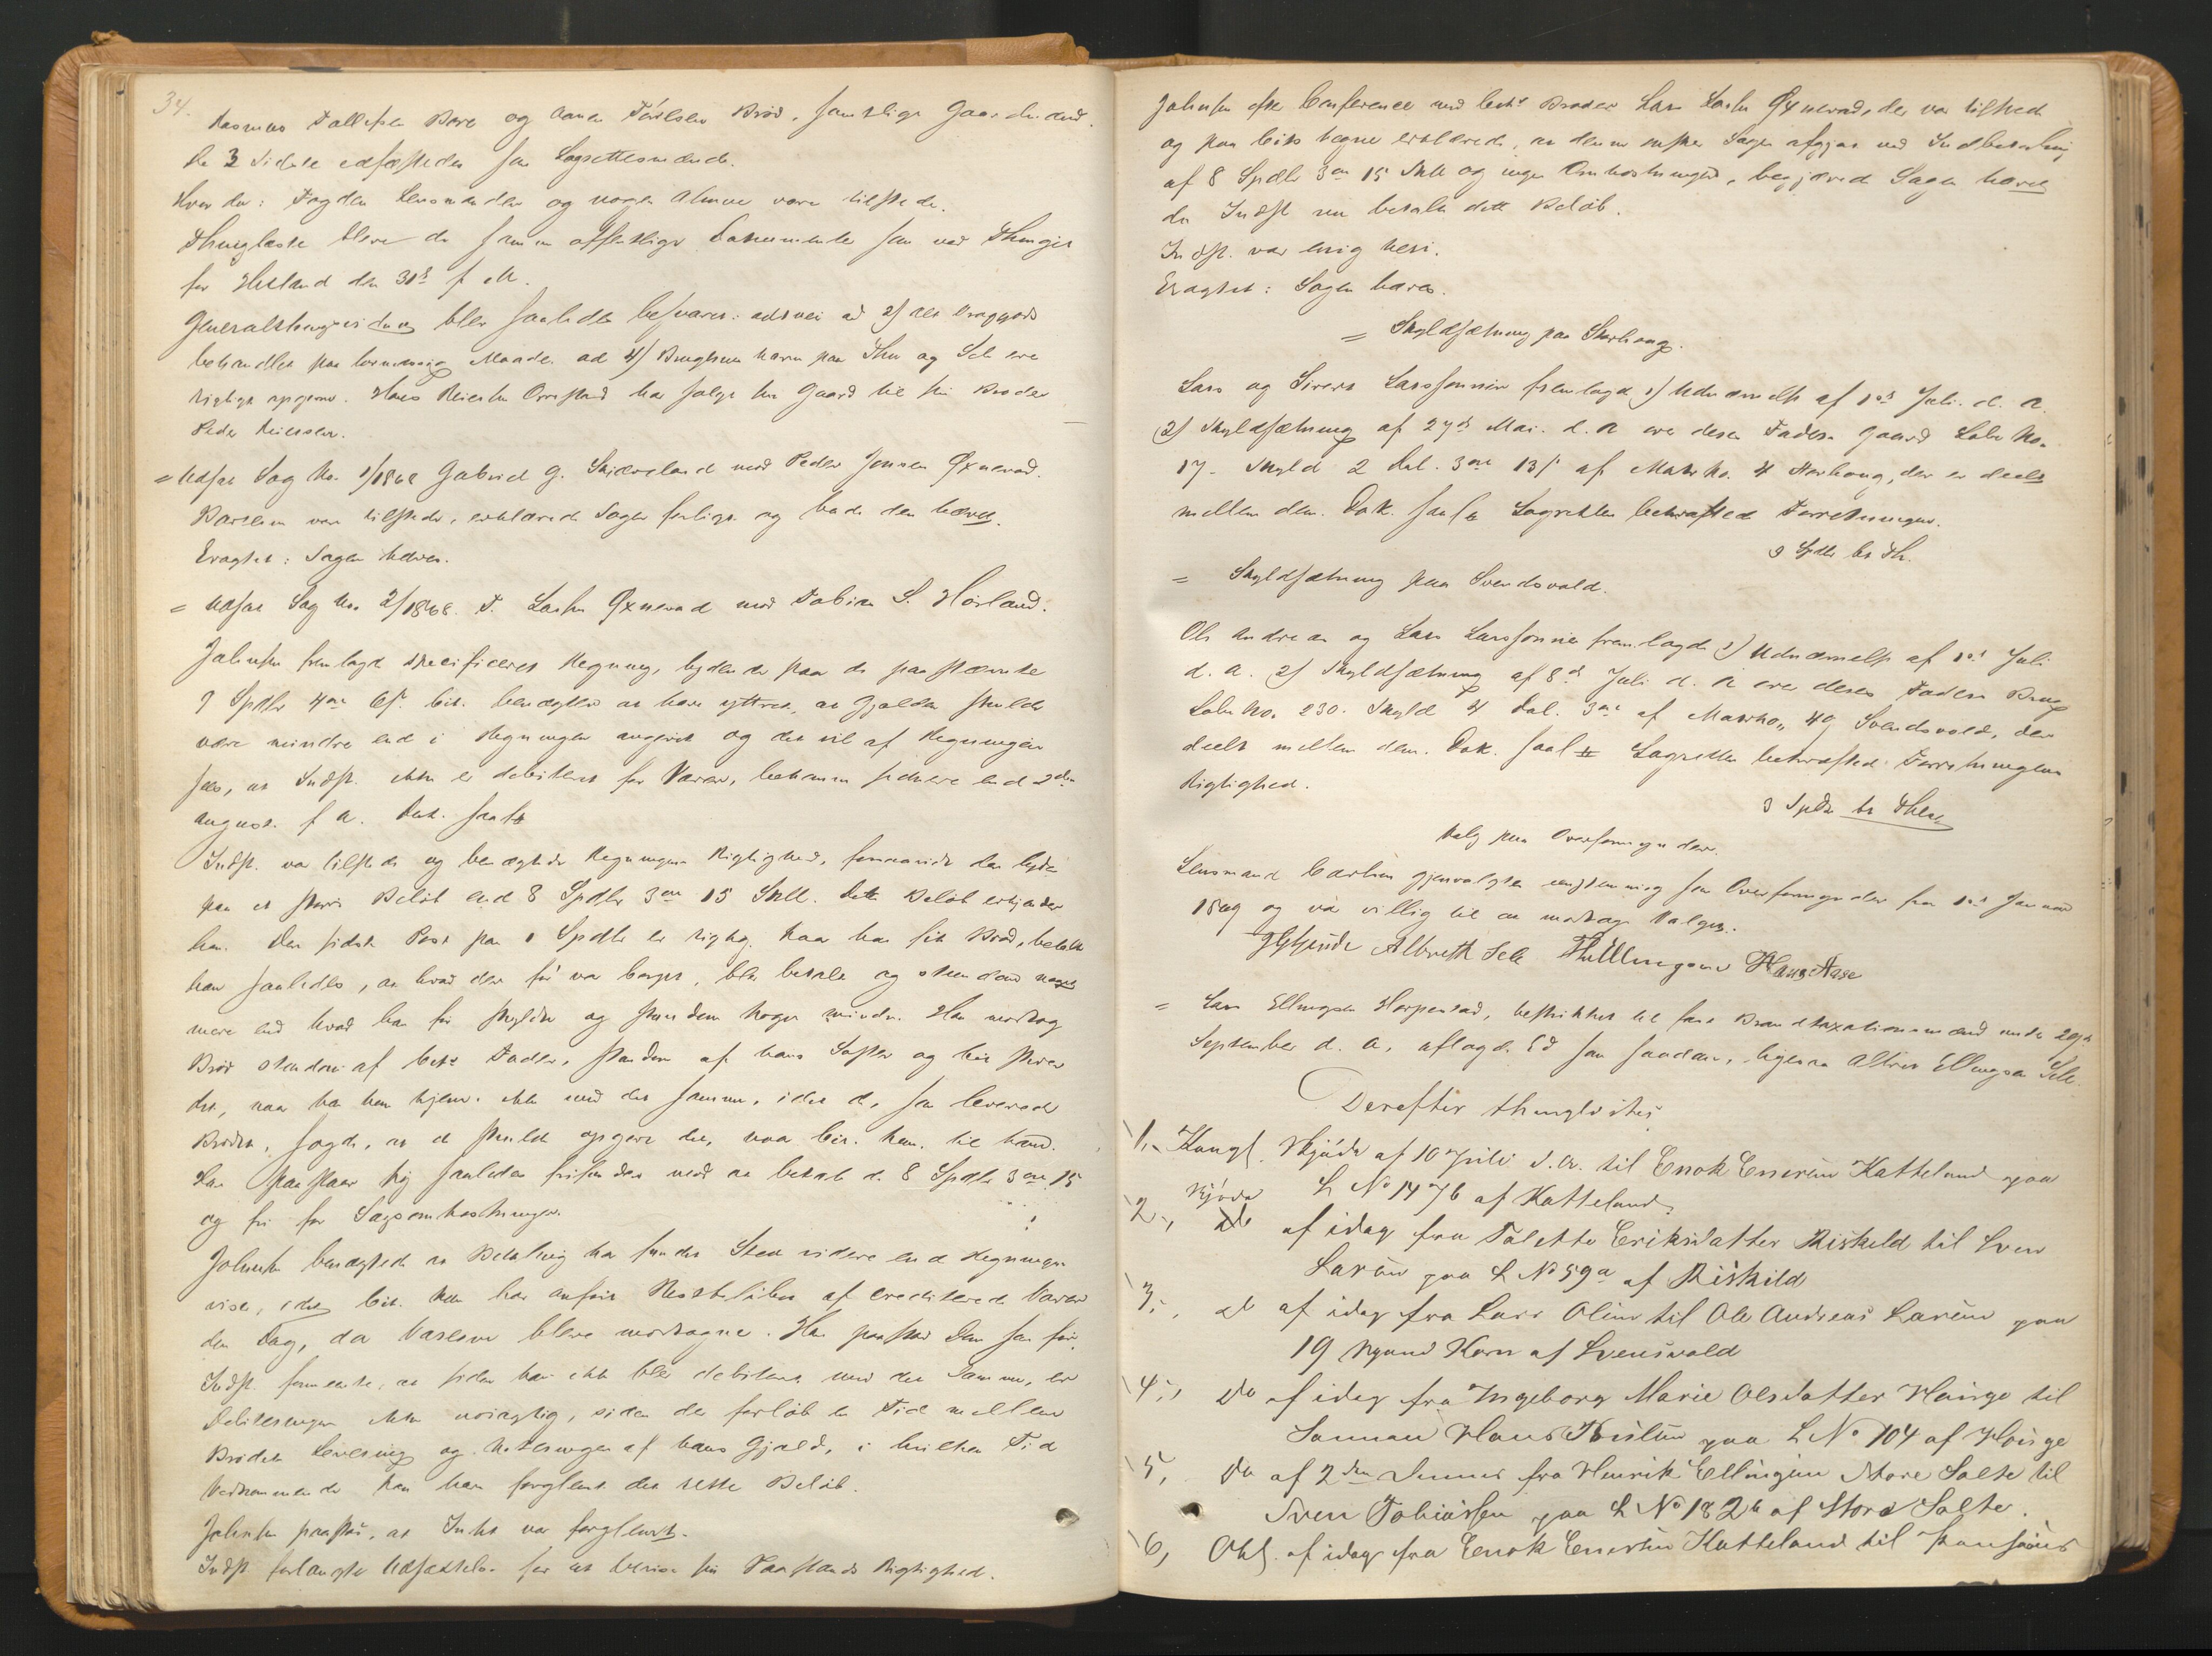 34.
Rasmus Tollefsen Bore og Aanen Brød, samtlige Gaardmænd.
De 3 Sidste edfæstedes som Lagrettesmænd.
Hvor da: Fogden Lensmanden og nogen Almue vare tilstede.
Thinglæste bleve de samme offentlige Dokumenter som ved Thinget
for Hetland den 30te f. M.
Generalthing blev saaledes besvaret: ad 2)
behandlet paa lovmæssig Maade. ad 4) paa Thu og Sele ere
rigtige opgivne. Hans Reiersen Orrestad har solgt sin Gaard til sin Broder
Peder Reiersen.
= Udsat Sag No. 1/1868 Gabriel G. Skiæveland mod Peder Jonsen Øxnevad.
Parterne vare tilstede, erklærede Sagen forligt og bade den hævet.
Eragtet: Sagen hæves.
= Udsat Sag No. 2/1868. T. Larsen Øxnevad mod Tobias S. Høiland.
Johnsen fremlagde specificeret Regning, lydende paa de paastævnte
9 Spdlr 4 ort 6 s. Cit. benægter at have yttret, at Gjælden skulde
være mindre end i Regningen angivet og det vil af Regningen
sees, at Indst. ikke er debiteret for Varer, bekomne sidenere end 2den
August f. A. Dok. saal.
Indst. var tilstede og benægtede Regningens Rigtighed, forsaavidt den lyder
paa et større Beløb end 8 Spdlr 3 ort 15 Skill. Dette Beløb erkjender
han. Den sidste Post paa 1 Spdlr er rigtig. Naar han fik Brød, betalte
han saaledes, at hvad der før var borget, blev betalt og stundom noget
mere end hvad han før skyldte og stundom noget mindre. Han modtog
Brød stundom af Cits Fader, stundom af hans Søster og Cit skrev
det, naar han kom hjem, ikke med det samme, idet de, som leverede
Brødet, sagde, at de skulde opgive det, naar Cit. kom til
Han paastaar sig saaledes frifunden mod at betale de 8 Spdlr 3 ort 15
og fri for Sagsomkostninger.
Johnsen benægtede at Betaling har fundet Sted videre end Regningen
viser, idet Cit. har anført Restbeløbet af crediterede Varer
den Dag, da Varerne bleve modtagne. Han paastod Dom som før.
Indst. formente, at siden han ikke blev debiteret med det samme, er
Debiteringen ikke nøiagtig, siden der forløb en Tid mellem
Brødets Levering og Noteringen af hans Gjæld, i hvilken Tid
Vedkommende kan have forglemt det rette Beløb.
Johnsen paastod, at Intet var forglemt.
Indst forlangte Udsættelse for at bevise sin Paastands Rigtighed.
Johnsen efter Conference med Cits Broder Lars Larsen Øxnevad, der var tilstede
og paa Cits Vegne erklærede, at denne ønsker Sagen afgjort ved Indbetaling
af 8 Spdlr 3 ort 15 Skill og ingen Omkostninger, begjærede Sagen hævet
da Indst nu betalte dette Beløb.
Indst. var enig heri.
Eragtet: Sagen hæves.
= Skyldsætning paa Skorhoug.
Lars og Sivert Larssønner fremlagde 1) Udnævnelse af 1ste Juli d. A.
2) Skyldsætning af 27de Mai d. A over deres Faders Gaard Løbe No.
17. Skyld 2 Dal. 3 ort 13 s af Matr No. 4 Skorhoug, der er deelt
mellem dem. Dok. saal. Lagretten bekræftede Forretningen.
3 Spdlr bt. Th.
= Skyldsætning paa Svendsvold.
Ole Andreas og Lars Larssønner fremlagde 1) Udnævnelse af 1ste Juli
d. A. 2) Skyldsætning af 8de Juli d. A over deres Faders Brug
Løbe No. 230. Skyld 4 Dal. 3 ort af Matr No. 49 Svendsvold, der
deelt mellem dem. Dok. saal. Lagretten bekræftede Forretningens
Rigtighed.
3 Spdlr bt.
Valg paa Overformynder.
Lensmand Carlsen gjenvalgtes eenstemmig som Overformynder fra 1ste Januar
1869 og var villig til at modtage Valget.
Albreth Sele Hans Aase
= Lars Ellingsen Horpestad, beskikket til fast Brandtaxationsmand under 29de
September d. A, aflagde Ed som saadan, ligesaa Ellingsen Sele.
Derefter thinglæstes
1, Kongl. Skjøde af 10 Juli d. A. til Enok Enersen Katteland paa
L No 147b af Katteland
2, Skjøde af idag fra Talette Eriksdatter Riskild til Sven
Larsen paa L No 59a af Riskild
3, do af idag fra Lars Olsen til Ole Andreas Larsen paa
19 Korn af Svensvold
4, do af idag fra Ingeborg Marie Olsdatter Hauge til
Sønnen Hans paa L No 104 af Hauge
5, do af 2den dennes fra Henrik Ellingsen Store Salte til
Sven Tobiassen paa L No 182b af Store Salte.
6, Obl. af idag fra Enok Enersen Katteland til